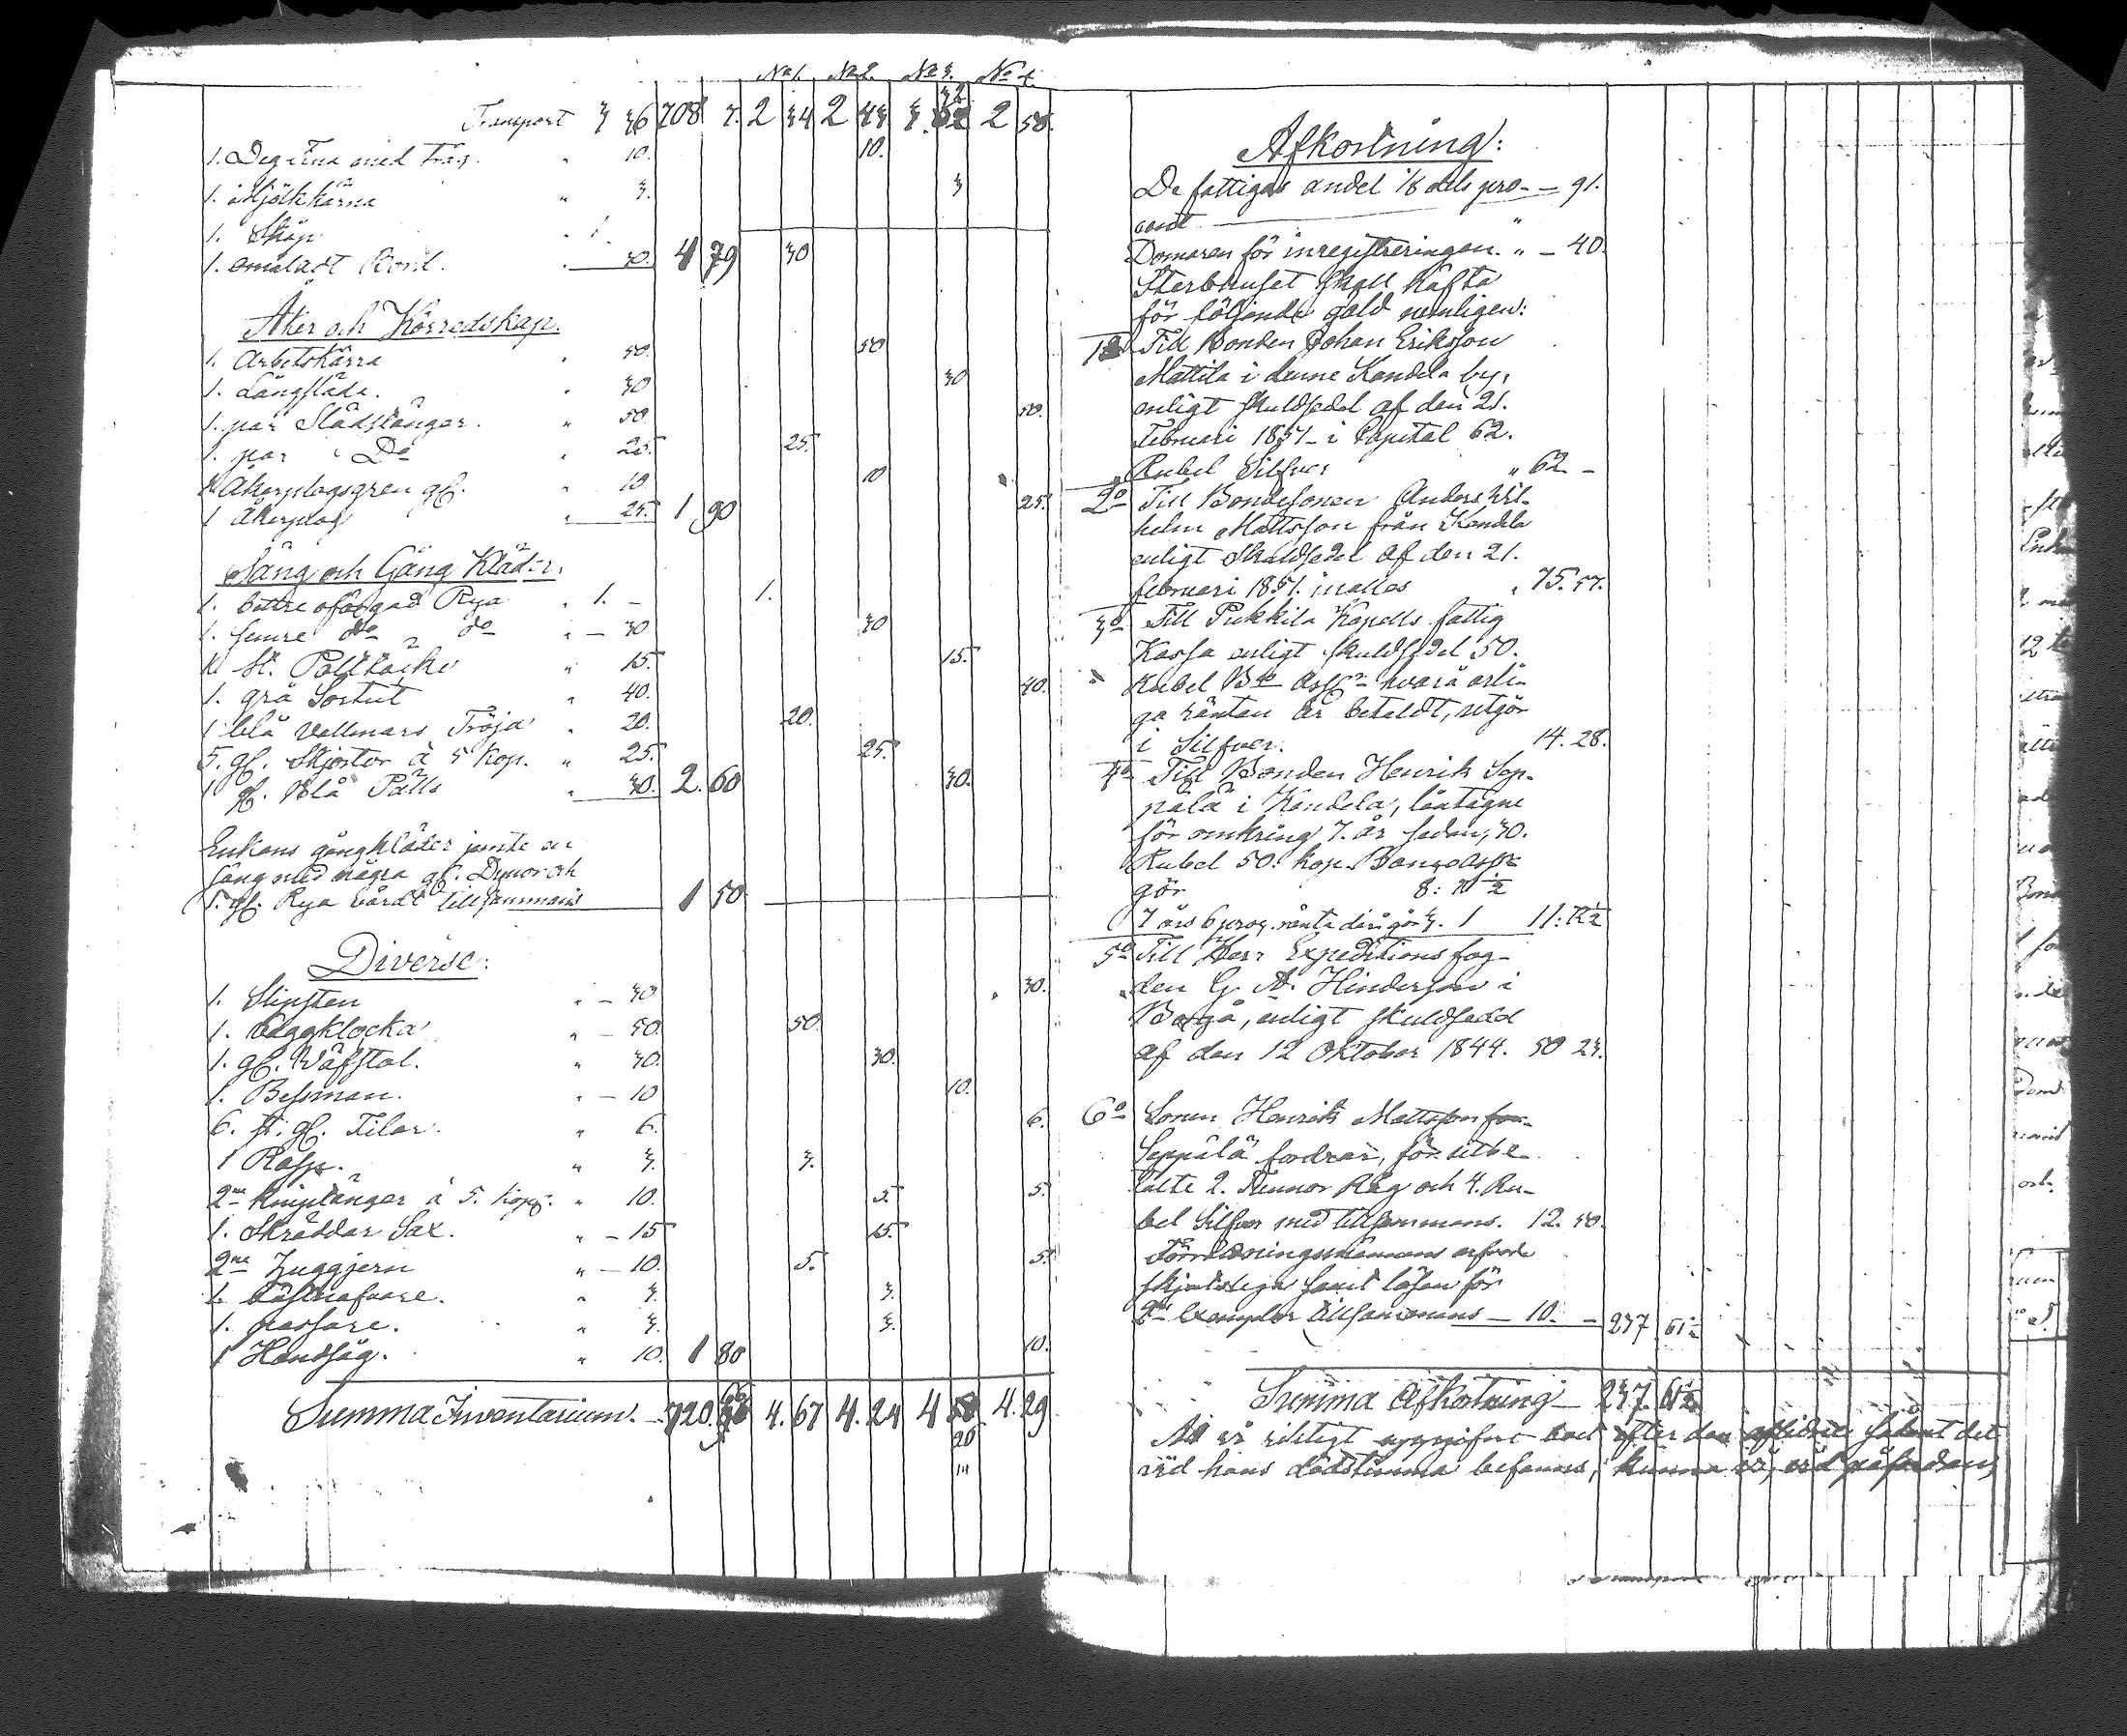 No 1. No 2. No 3. No 4.
Transport 3 36 708 7. 2 34 2 43 3. 32 2 58.
1. Degtina med Tråg. " 10. 10.
1. Mjölkkärna " 3. 3
1. Skåp " 1.
1. omåladt Bord. " 30. 4 79 30
Åker och Körredskap.
1. Arbetskärra " 50. 50
1. Långsläde. " 30 30
1. par Slädstänger. " 50 50.
1. par Do " 25 25.
1 Åkerplogsgren gl. " 10 10
1 Åkerplog " 25. 1 90 25.
Säng och Gång Kläder.
1. bättre ofärgad Rya " 1. - 1.
1. semre do do " - 30 30
1. st. Pälttäcke " 15. 15.
1. grå Sortut " 40. 40.
1 blå Vallmars Tröja " 20. 20.
5. gl. Skjortor à 5 Kop. " 25. 25.
1 gl. Blå Pälls " 30. 2. 60 30.
Enkans gångkläder jemte en
säng med några gl. Dynor och
1. gl. Rya värdt tillsammans 1 50
Diverse:
1. Slipsten " - 30 30.
1. Väggklocka " - 50 50
1. gl. Wäfstol. " 30. 30.
1. Besman. " - 10 10.
6. st. gl. Filar. " 6. 6.
1 Rasp. " 3. 3.
2ne Kniptänger à 5. Kop. " 10. 5 5.
1. Skräddar Sax. " - 15 15.
2ne Huggjern " - 10. 5. 5.
1. " 3. 3.
1. passare. " 3. 3.
1 Handsåg. " 10. 1 80 10.
Summa Inventarium. 720. 66 4. 67 4. 24 4 58 4. 29
20
Afkortning:
De fattigas andel 1/8 dels pro- — 91.
cent "
Domaren för inregistreringen. " - 40.
Sterbhuset skall häfta
för följande gäld nemligen:
1o Till Bonden Johan Eriksson
Mattila i denne Kandela by,
enligt skuldsedel af den 21.
Februari 1851 i Capital 62.
Rubel Silfver " 62 -
2o Till Bondesonen Anders Wil-
helm Mattsson från Kandela
enligt skuldsedel af den 21.
februari 1851. innallas " 75. 57.
3o Till Pukkila Kapells fattig
Kassa enligt skuldsedel 50.
Rubel Bco Assgn hvarå årli-
ga räntan är betaldt, utgör
i Silfver. 14. 28.
4o Till Bonden Henrik Sep-
pälä i Kandela, låntagne
för omkring 7. år sedan, 30.
Rubel 50. kop. Banco Assgn
gör 8: 70 1/2
7 års 6 proc. ränta deri gör 3. 1 11: 72 1/2
5o Till Herr Expeditionsfog-
den G. A. Hinderson i
Borgå, enligt skuldsedel
af den 12 Oktober 1844. 50 23.
6o Sonen Henrik Mattsson
Seppälä fordrar, för utbe-
talte 2. Tunnor Råg och 4. Ru-
bel Silfver med tillsammans. 12. 50.
Förrättningsmännens arfvode
skjutslega samt lösen för
2ne Exemplar tillsammans — 10. - 237 61 1/2
Summa Afkortning — 237. 61 1/2
At vi riktigt uppgifvit boet efter den aflidne sådant det
vid hans dödstimma befanns, kunna vi, vid påfordran,